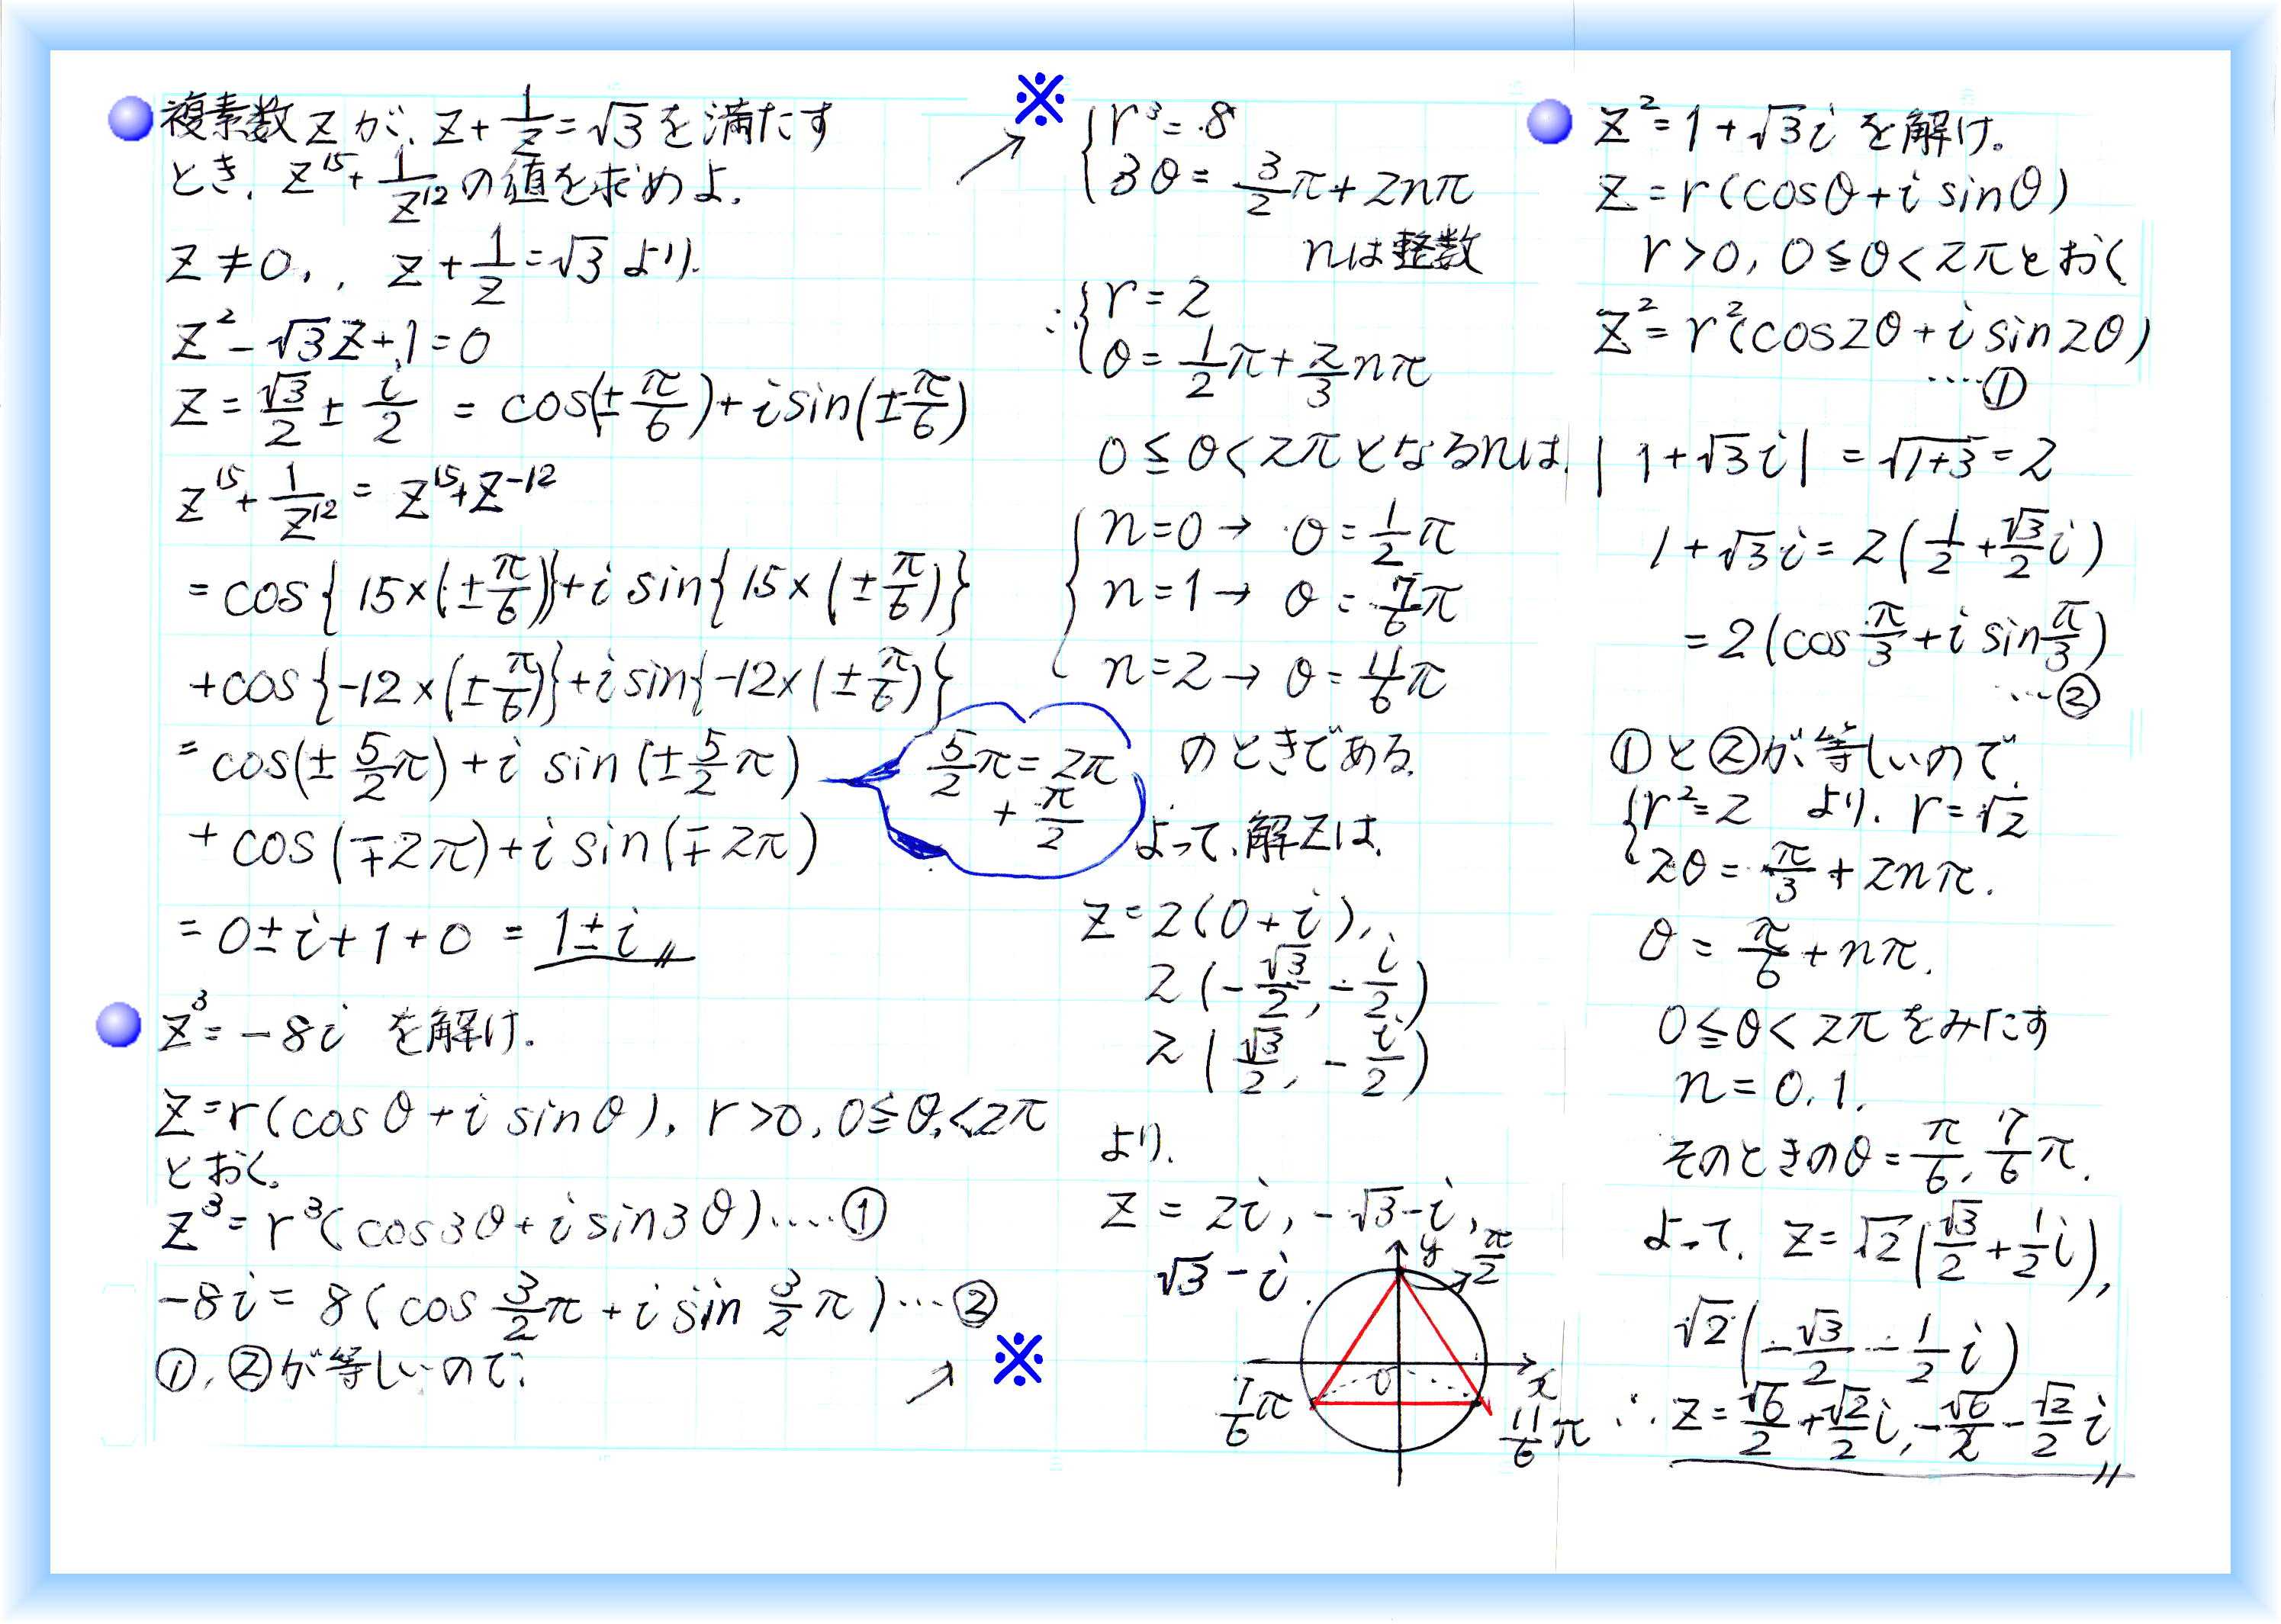 複素数zが、z+1/z=√3を満たす
とき、z^15+1/z^12の値を求めよ.
z≠0, z+1/z=√3より.
z^2-√3z+1=0
z=√3/2±i/2=cos(±π/6)+isin(±π/6)
z^15+1/z^12=z^15+z^-12
=cos{15×(±π/6)}+i sin{15×(±π/6)}
+cos{-12×(±π/6)}+i sin{-12×(±π/6)}
=cos(±5/2π)+i sin(±5/2π)
5/2π=2π
+π/2
+cos(∓2π)+i sin(∓2π)
=0±i+1+0=1±i〃
z^3=-8i を解け.
z=r(cosθ+i sinθ), r>0, 0≦θ<2π
とおく。
z^3=r^3(cos3θ+i sin3θ)....①
-8i=8(cos3/2π+i sin3/2π)...②
①, ②が等しいので、
↗ ※
↗ ※
{r^3=8
3θ=3/2π+2nπ
nは整数
∴{r=2
θ=1/2π+2/3nπ
0≦θ<2πとなるnは、
{n=0→θ=1/2π
n=1→θ=7/6π
n=2→θ=11/6π
のときである.
よって、解zは、
z=2(0+i),
2(-√3/2,-i/2)
2(√3/2,-i/2)
より、
z=2i, -√3-i,
√3-i.
y π/2
0 x
7/6π 11/6π
z^2=1+√3i を解け。
z=r(cosθ+i sinθ)
r>0, 0≦θ<2πとおく
z^2=r^2(cos2θ+i sin2θ)
....①
|1+√3i|=√1+3=2
1+√3i=2(1/2+√3/2i)
=2(cosπ/3+i sinπ/3)
...②
①と②が等しいので、
{r^2=2 より、r=√2
2θ=π/3+2nπ.
θ=π/6+nπ.
0≦θ<2πをみたす
n=0,1.
そのときのθ=π/6, 7/6π.
よって、z=√2(√3/2+1/2i),
√2(-√3/2-1/2i)
∴z=√6/2+√2/2i, -√6/2-√2/2i〃